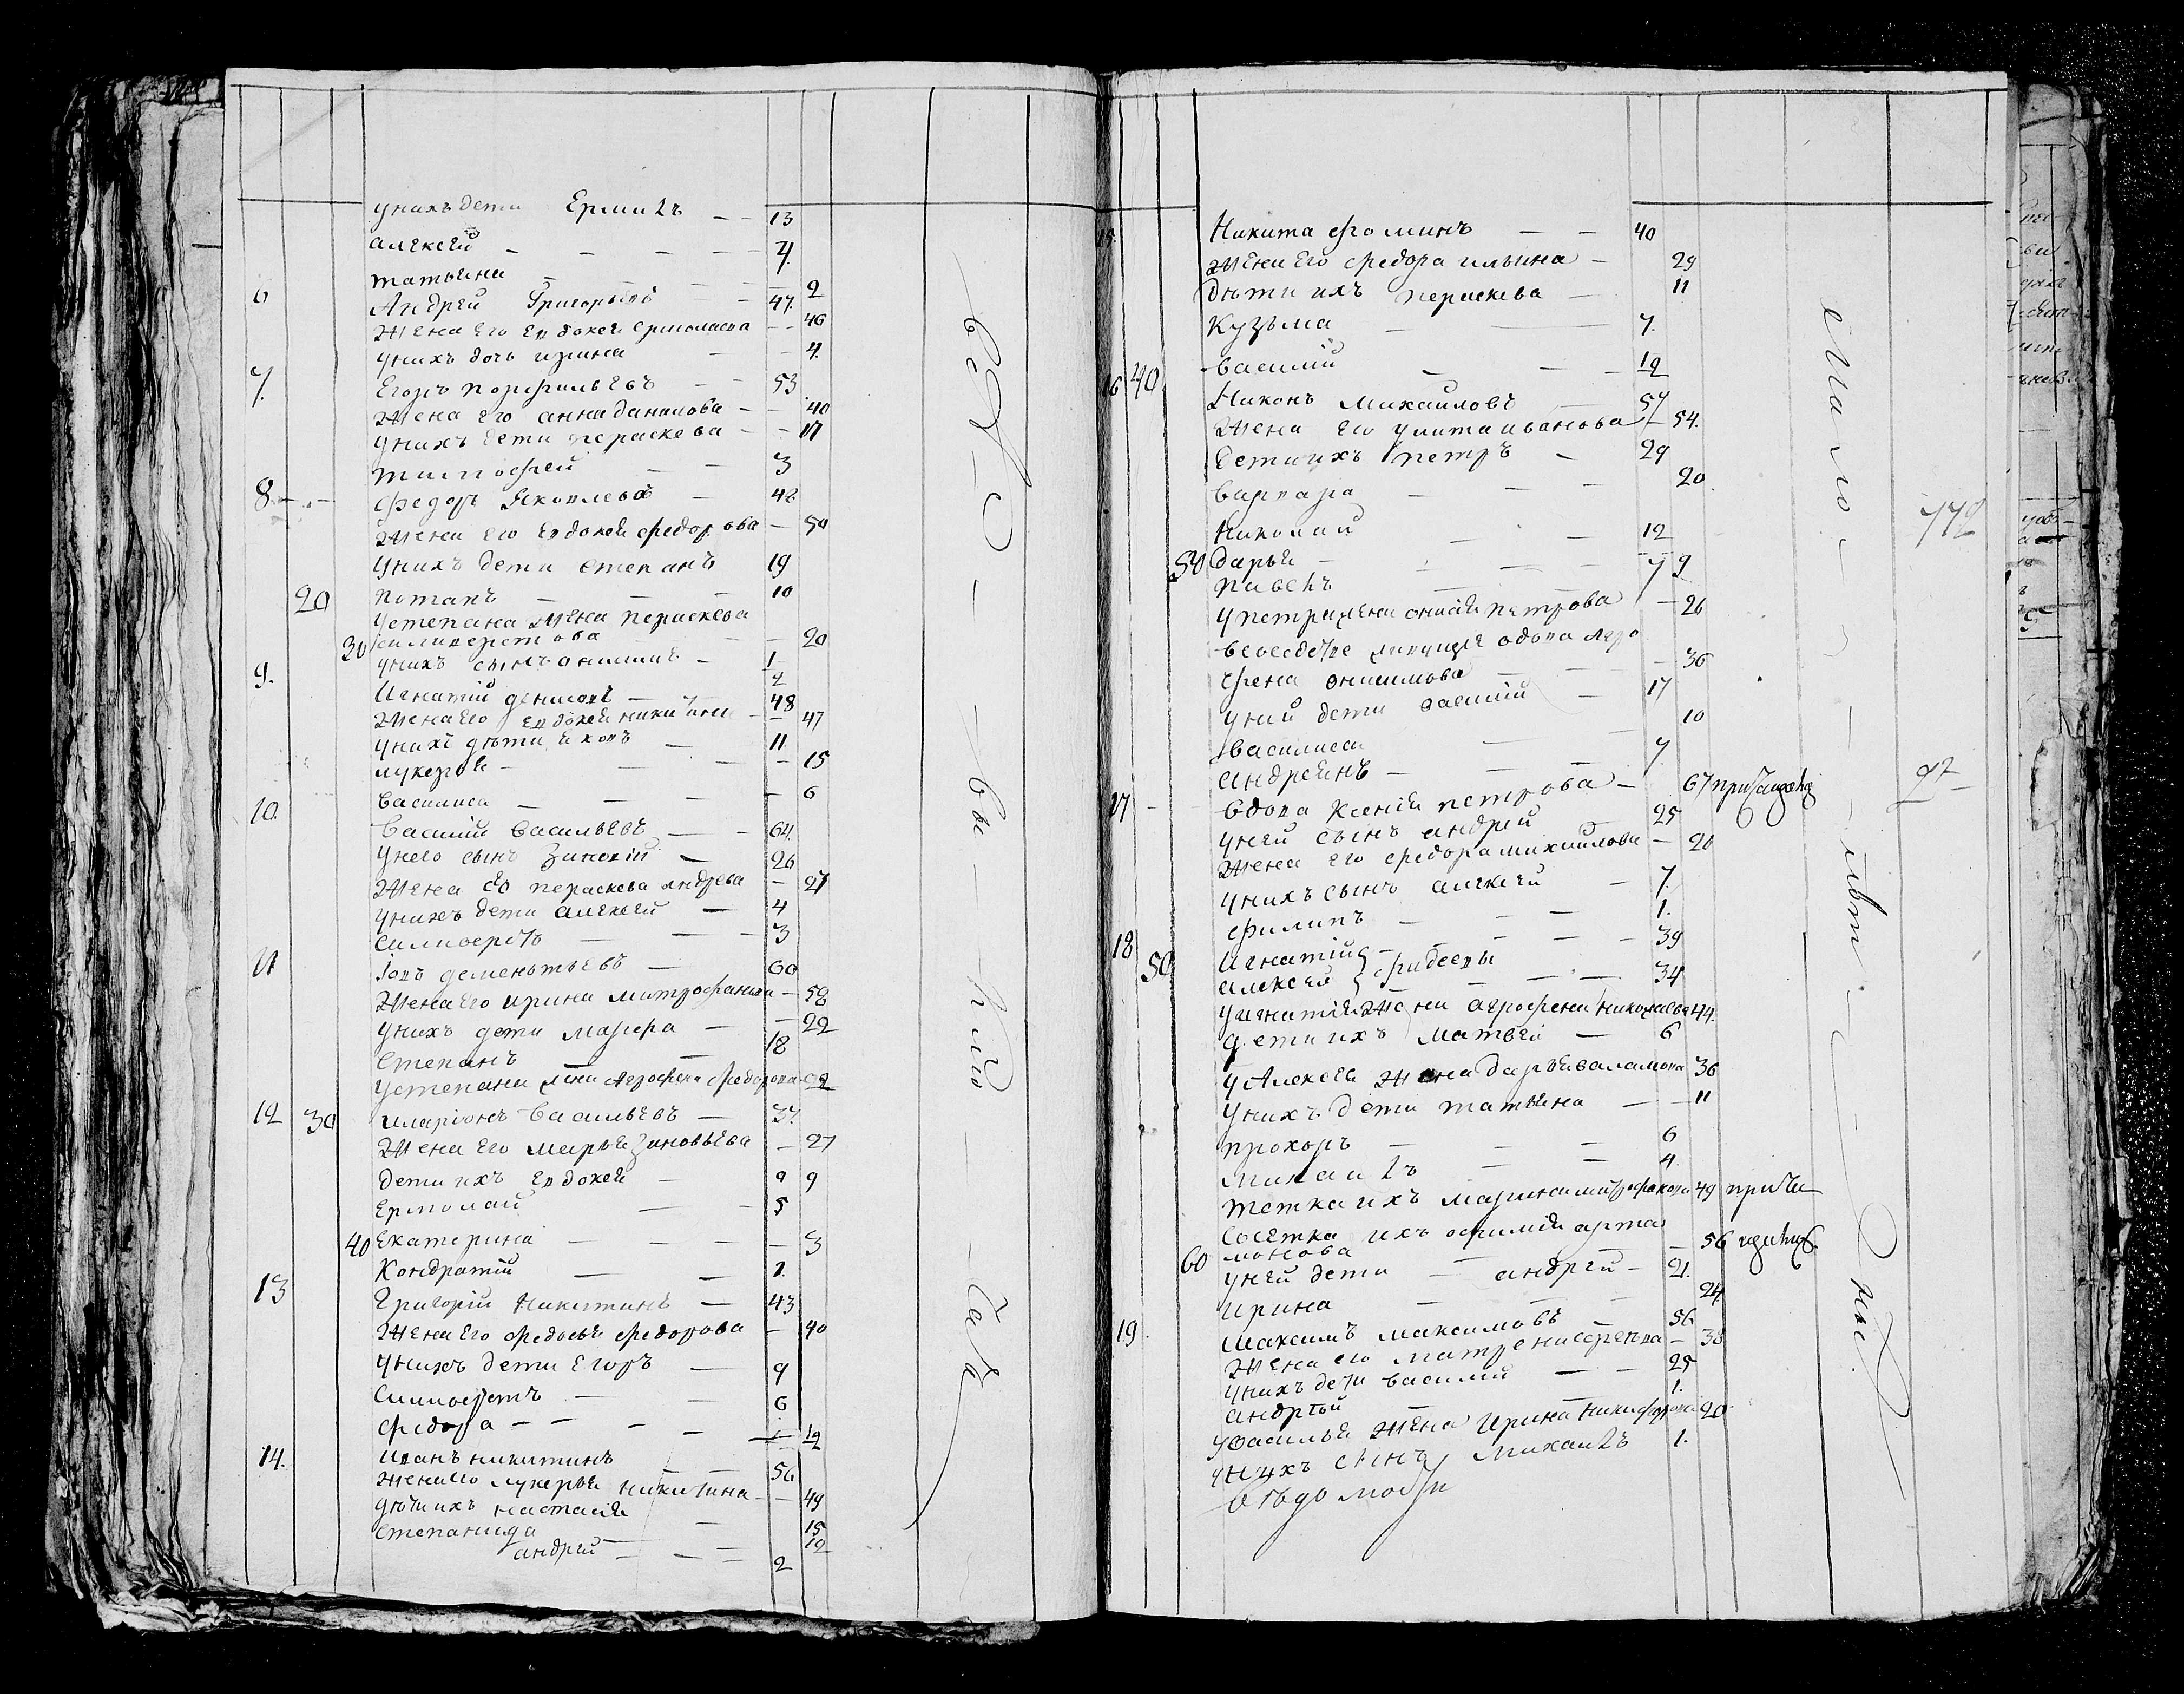 у нихъ дети Ермилъ - - 13
алексей - - - - 7
татьяна - - - - 2
6 Андрей Григорьевъ - 47
жена его Евдокея Ермолаева - - 46
у нихъ дочь ирина - - 4
7. Егоръ порфильевъ - - 53
жена его анна данилова - - 40
у нихъ дети пераскева - - 17
тимофей - - 3
8 - - федоръ Яковлевъ - 48
жена его Евдокея федорова - 50
у нихъ дети степанъ 19
20 потапъ - - - 10
у степана жена пераскева
30 силиверстова - - 20
у нихъ сынъ онисимъ - 1
9. Игнатий денисовъ - - 48
жена его Евдокея никитина - - 47
у нихъ дети яковъ - 11
лукерья - - - - 15
василиса - - - - 6
10. Василий Васильевъ - - 64
у него сынъ зиновий - 26
жена его пераскева андреева - 27
у нихъ дети алексей - 4
силиверстъ - - - 3
11 Иовъ дементьевъ - 60
жена его ирина митрофанова - 58
у нихъ дети марфа - - 22
степанъ - - 18
у степана жена Агрофена федорова 22
12 30 иларионъ Васильевъ - 37.
жена его марья зиновьева - 27
дети ихъ Евдокея - 9
Ермолай - - 5
40 Екатерина - - - - 3
Кондратий - - 1.
13 Григорий Никитинъ - 43
жена его федосья федорова - 40
у нихъ дети Егоръ - 9
силиверстъ - - 6
федора - - - - 12
14. Иванъ никитинъ - - 56
жена его лукерья никитина - - 49
дети ихъ настасия - 15
степанида - - 12
андрей - - - 2
15. Никита фоминъ - - 40
жена его федора ильина - 29
дети ихъ пераскева - 11
Кузьма - - 7.
василий - - - 12
16 40 Никонъ Михайловъ - 57
жена его улита иванова - 54.
дети ихъ петръ - 29
варвара - - - 20
николай - - 12
50 дарья - - - - 9
павелъ - - 7
у петра жена онисия петрова - 26
агро
фена онисимова - - - 36
у ней дети василий - 17
василиса - - 10
андреянъ - - - 7
17 - вдова Ксения петрова - 67
у ней сынъ андрей 25
жена его федора михайлова - 26
у нихъ сынъ алексей - 7.
филипъ - - - 1.
18 Игнатий - - - - 39
50 алексей } фадеевы - - 34
у игнатия жена агрофена николаева 44.
дети ихъ матвей - 6
у Алексея жена дарья варламова 36
у нихъ дети татьяна - - 11
прохоръ - - 6
михаилъ - - 4
тетка ихъ марина митрофанова 49
ихъ офимия арта
60 монова - 56
у ней дети - андрей - 21.
ирина - - - 24
19. Максимъ максимовъ - 56
жена его матрена - 38
у нихъ дети василий - - 25
андрей - - 1.
у василья жена Ирина никифорова 20
у нихъ сынъ михаилъ 1.
772
97